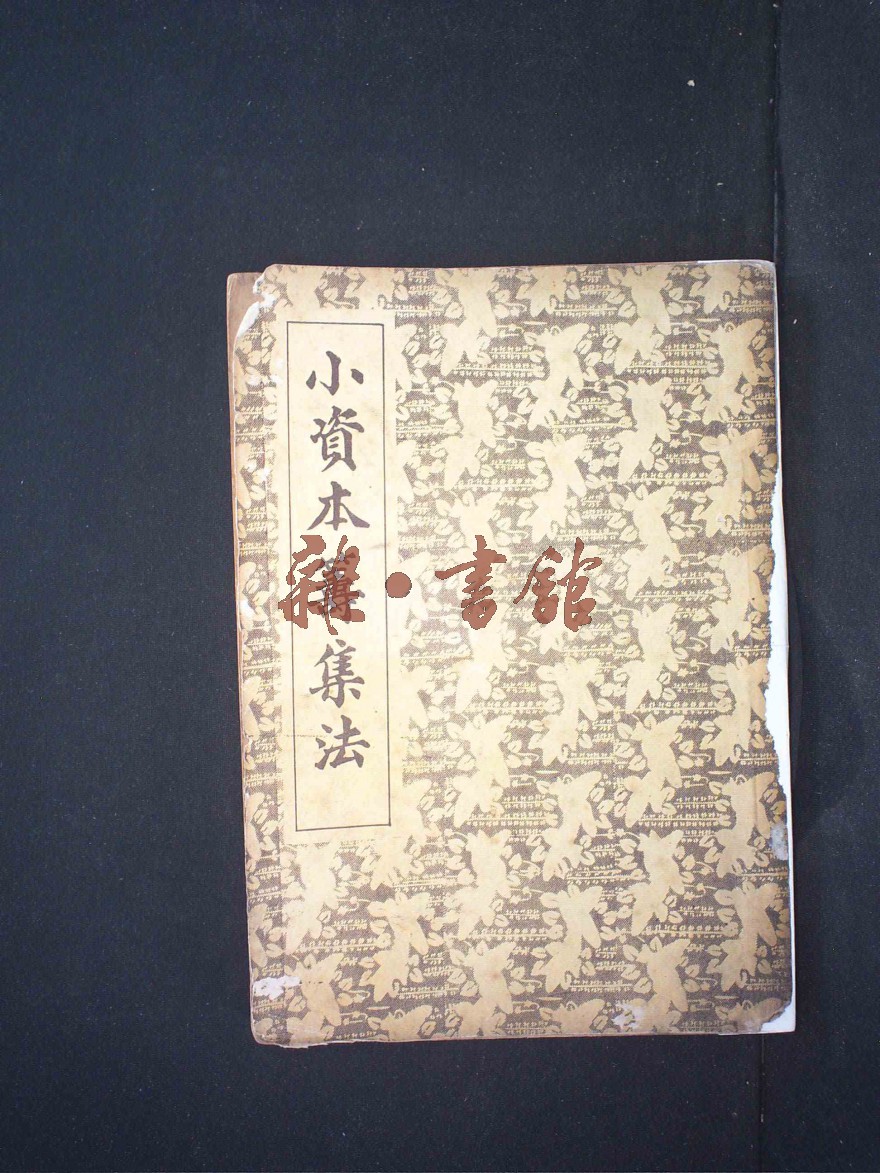 小資本籌集法
雜·書館